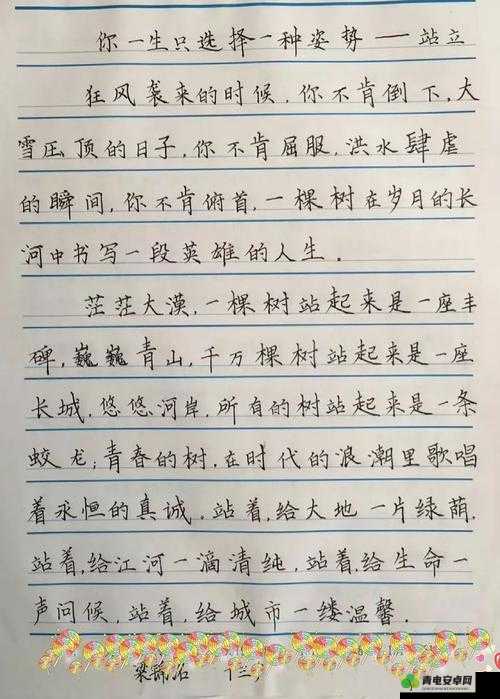 你一生只选择一种姿势——站立
狂风袭来的时候,你不肯倒下,大
雪压顶的日子,你不肯屈服,洪水肆虐
的瞬间,你不肯俯首,一棵树在岁月的长
河中书写一段英雄的人生.
茫茫大漠,一棵树站起来是一座丰
碑,巍巍青山,千万棵树站起来是一座
长城,悠悠河岸,所有的树站起来是一条
蛟龙;青春的树,在时代的浪潮里歌唱
着永恒的真诚.站着,给大地一片绿荫,
站着,给江河一滴清纯,站着,给生命一
声问候,站着,给城市一缕温馨.
青电安卓网